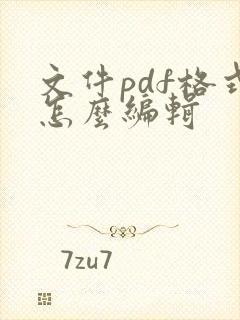 文件pdf格式
怎麽編輯
7zu7